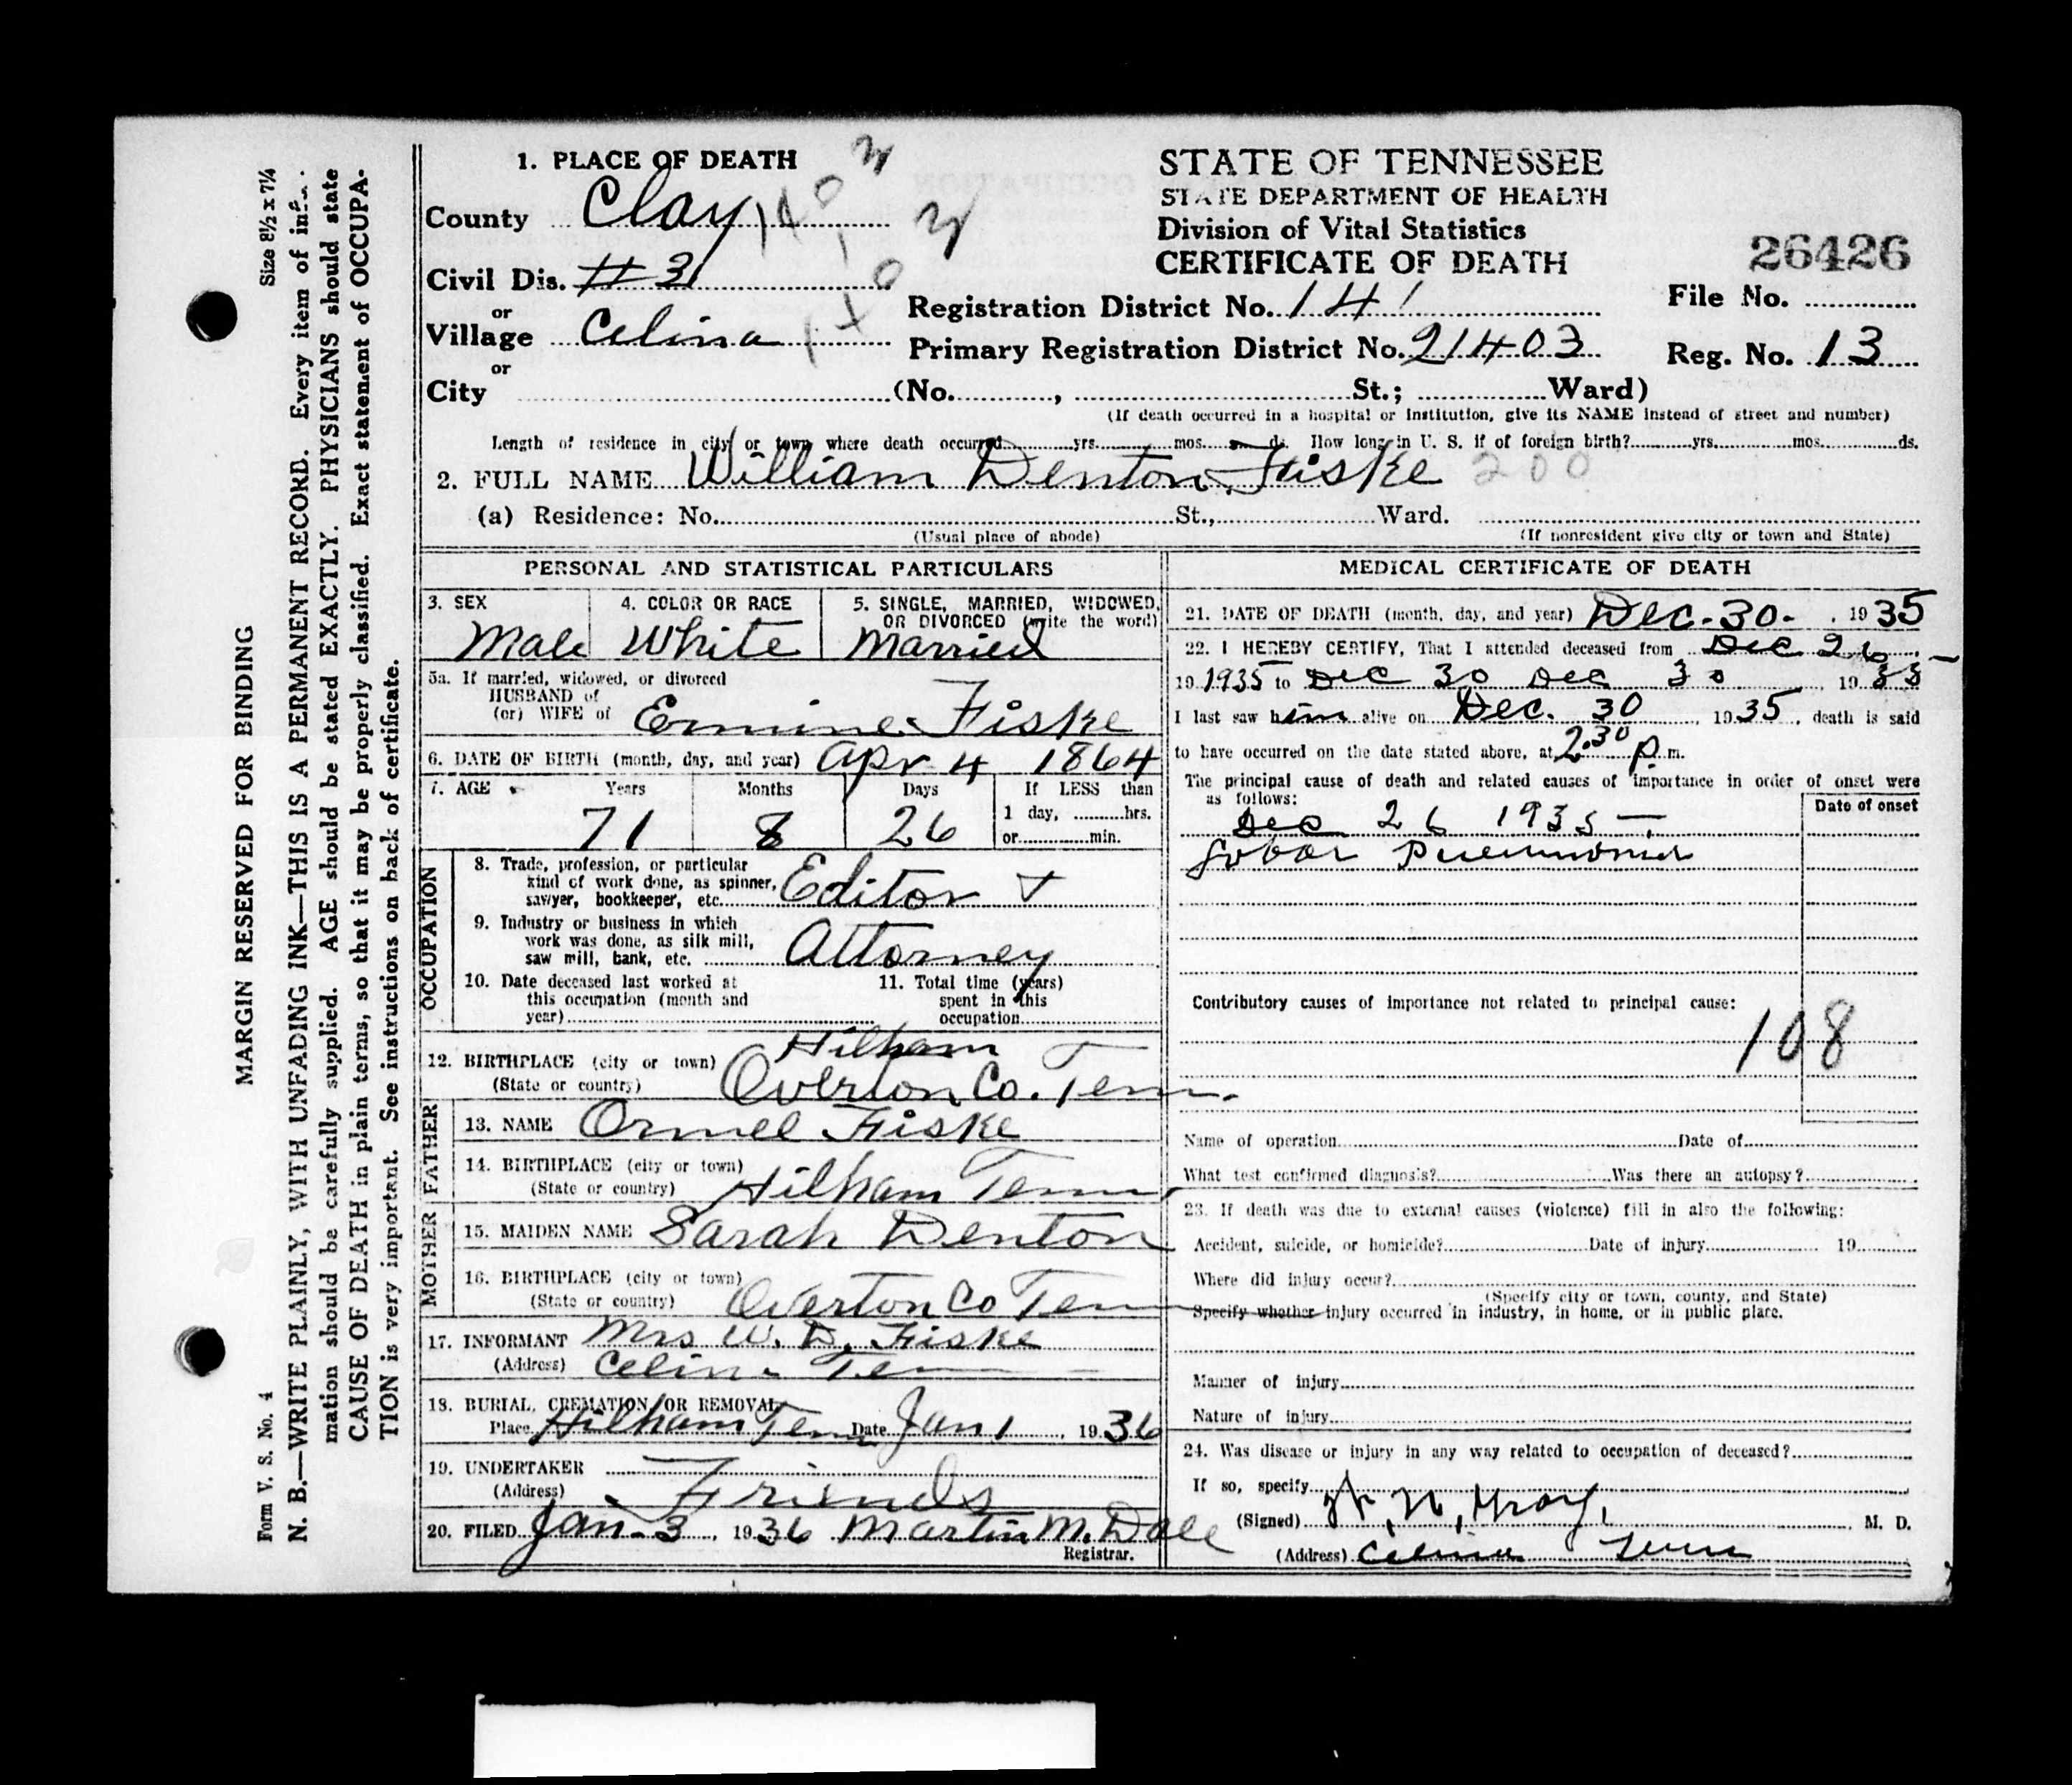 MARGIN RESERVED FOR BINDING
Size 8½ x 7¼
Form V. S. No. 4
N. B.—WRITE PLAINLY, WITH UNFADING INK—THIS IS A PERMANENT RECORD. Every item of inf
mation should be carefully supplied. AGE should be stated EXACTLY. PHYSICIANS should state
CAUSE OF DEATH in plain terms, so that it may be properly classified. Exact statement of OCCUPA-
TION is very important. See instructions on back of certificate.
STATE OF TENNESSEE
STATE DEPARTMENT OF HEALTH
Division of Vital Statistics
CERTIFICATE OF DEATH
26426
1. PLACE OF DEATH
County Clay
Civil Dis. #3
or
Village Celina
or
City (No. , St.; Ward)
Registration District No. 141
File No.
Primary Registration District No. 21403
Reg. No. 13
(If death occurred in a hospital or institution, give its NAME instead of street and number)
Length of residence in city or town where death occurred yrs. mos. ds. How long in U. S. if of foreign birth? yrs. mos. ds.
2. FULL NAME William Denton Fiske 200
(a) Residence: No. St., Ward.
(Usual place of abode) (If nonresident give city or town and State)
PERSONAL AND STATISTICAL PARTICULARS
3. SEX Male
4. COLOR OR RACE White
5. SINGLE, MARRIED, WIDOWED, OR DIVORCED (write the word) Married
5a. If married, widowed, or divorced
HUSBAND of
(or) WIFE of Ermine Fiske
6. DATE OF BIRTH (month, day, and year) Apr 4 1864
7. AGE Years Months Days If LESS than
71 8 26 1 day, hrs.
or min.
OCCUPATION
8. Trade, profession, or particular
kind of work done, as spinner,
sawyer, bookkeeper, etc. Editor +
9. Industry or business in which
work was done, as silk mill,
saw mill, bank, etc. Attorney
10. Date deceased last worked at
this occupation (month and
year)
11. Total time (years)
spent in this
occupation
12. BIRTHPLACE (city or town) Hilham
(State or country) Overton Co. Tenn.
FATHER
13. NAME Ormel Fiske
14. BIRTHPLACE (city or town)
(State or country) Hilham Tenn
MOTHER
15. MAIDEN NAME Sarah Denton
16. BIRTHPLACE (city or town)
(State or country) Overton Co Tenn
17. INFORMANT Mrs W. D. Fiske
(Address) Celina Tenn
18. BURIAL, CREMATION, OR REMOVAL
Place Hilham Tenn Date Jan 1, 1936
19. UNDERTAKER
(Address) Friends
20. FILED Jan. 3, 1936 Martin M. Dale
Registrar.
MEDICAL CERTIFICATE OF DEATH
21. DATE OF DEATH (month, day, and year) Dec. 30 - , 1935
22. I HEREBY CERTIFY, That I attended deceased from Dec 26,
19 1935 to Dec 30 Dec 30, 19 35
I last saw him alive on Dec. 30, 1935, death is said
to have occurred on the date stated above, at 2:30 p. m.
The principal cause of death and related causes of importance in order of onset were
as follows:
Date of onset
Dec 26 1935
Lobar Pneumonia
Contributory causes of importance not related to principal cause:
108
Name of operation Date of
What test confirmed diagnosis? Was there an autopsy?
23. If death was due to external causes (violence) fill in also the following:
Accident, suicide, or homicide? Date of injury 19
Where did injury occur?
(Specify city or town, county, and State)
Specify whether injury occurred in industry, in home, or in public place.
Manner of injury
Nature of injury
24. Was disease or injury in any way related to occupation of deceased?
If so, specify
(Signed) Gray, M. D.
(Address) Celina Tenn